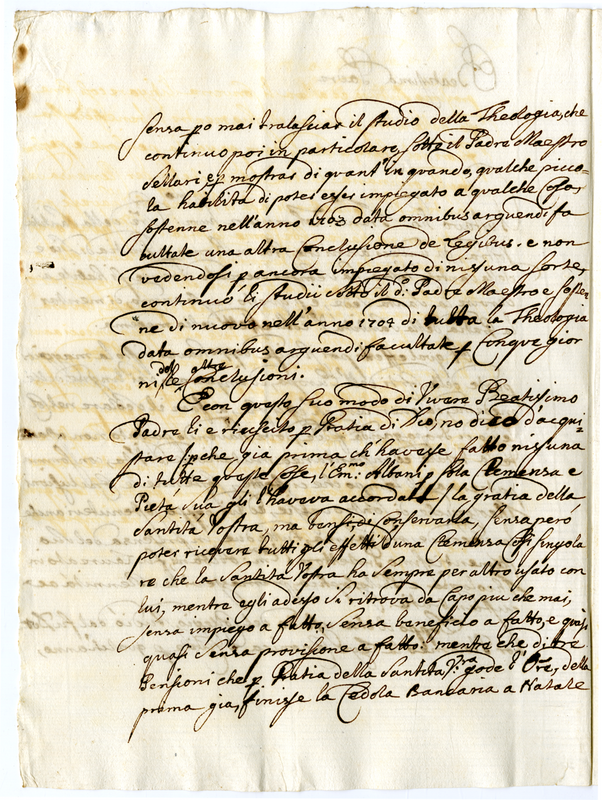 senza po mai tralasciar il studio della Theologia, che
continuo poi in particolare, sotto il Padre Maestro
Sellari e p mostrar di quant' in quando, qualche picco=
la habilità di poter esser impiegato a qualche cosa,
sostenne nell'anno 1703 data omnibus arguendi fa
cultate una altra Conclusione de Legibus. e non
vedendosi p ancora impiegato di nissuna sorte,
continuò li studii sotto il d.º Padre Maestro e soste=
ne di nuovo nell'anno 1704 di tutta la Theologia
data omnibus arguendi facultate p Cinque gior
ni le dd altre Conclusioni.
E con questo suo modo di Vivere Beatissimo
Padre li e riescito p Gratia di Dio, no dico d'acqui=
stare, p che già prima ch'havesse fatto nissuna
di tutte queste Cose, l'Em.mo Albani p sola Clemenza e
Pietà sua gli l'haveva accordata / la gratia della
Santità Vostra, ma bensi di Conservarla, senza però
poter ricevere tutti gli effetti d'una Clemenza Cosi singola
re che la Santità Vostra ha sempre per altro usato con
lui, mentre egli adesso si ritrova da Capo piu che mai,
senza impiego a fatto, senza beneficio a fatto, e quasi
quasi senza provisione a fatto. mentre che di tre
Pensioni che p Gratia della Santità V.ra gode l'Ore, della
prima già, finisse la Cedola Bancaria a Natale